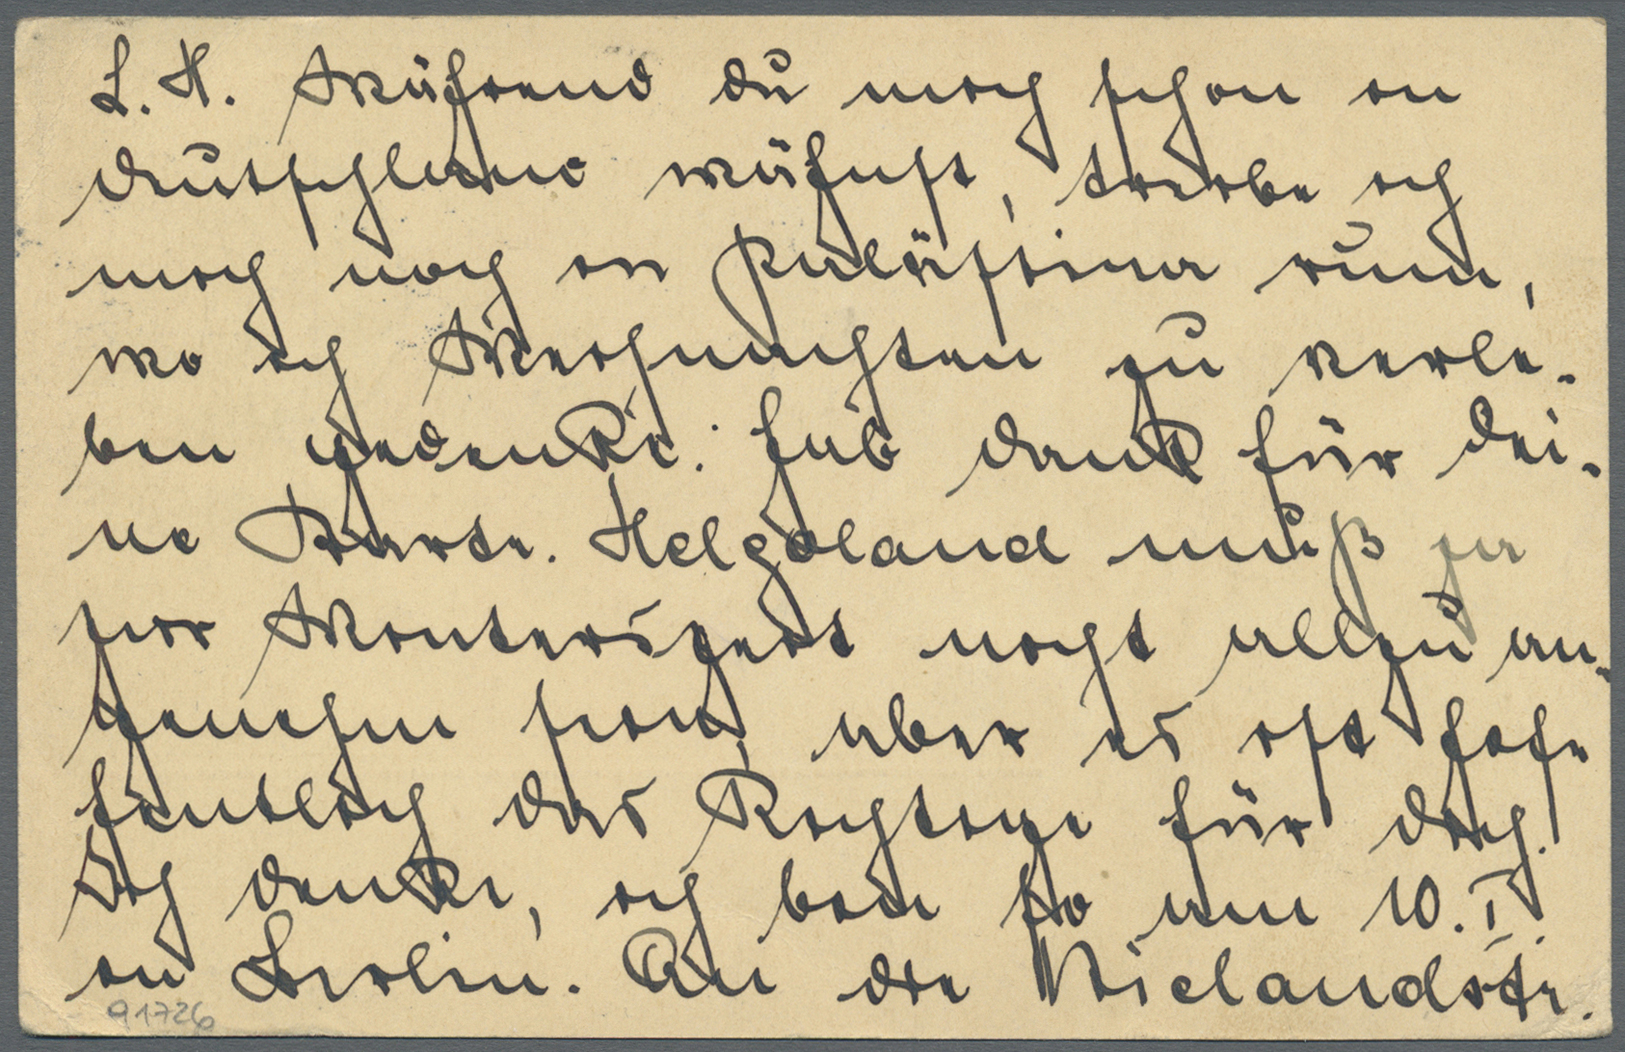 L. H. Während du mich schon in
Deutschland wähnst, treibe ich
mich noch in Palästina rum,
wo ich Weihnachten zu verle-
ben gedenke. Hab Dank für Dei-
ne Karte. Helgoland muß ja
zur Winterszeit nicht allzu an-
genehm sein, aber es ist hof-
fentlich das Richtige für dich.
Ich denke, ich bin so am 10. I.
in Berlin. An die Wielandstr.
91726